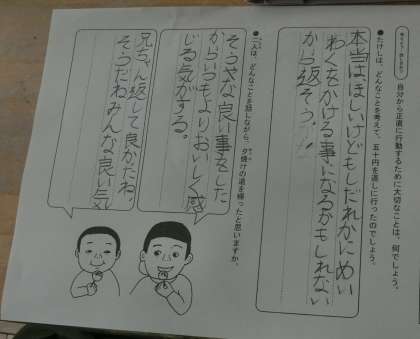 自分から正直に行動するために大切なことは、何でしょう。
●たけしは、どんなことを考えて、五十円を返しに行ったのでしょう。
本当は、ほしいけどもしだれかにめい
わくをかける事になるかもしれない
から返そう。
●二人は、どんなことを話しながら、夕焼けの道を帰ったと思いますか。
そうだな良い事をした
からいつもよりおいしく感
じる気がする。
兄ちゃん返して良かたね。
そうだねみんなも良い気